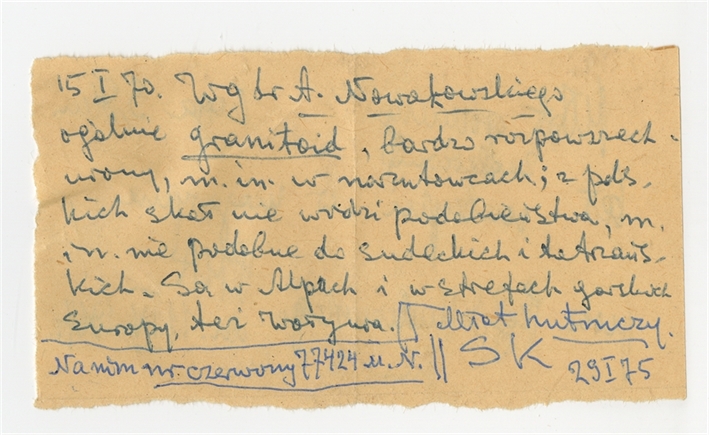 15 I 70. Wg dr A. Nowakowskiego
ogólnie granitoid, bardzo rozpowszech-
niony, m. in. w narzutowcach; z pols-
kich skał nie widzi podobieństwa, m.
in. nie podobne do sudeckich i tatrzańs-
kich. Są w Alpach i w strefach górskich
Europy, też Wołynia. Młot hutniczy.
Na nim nr. czerwony 77424 M. N. || SK
29 I 75